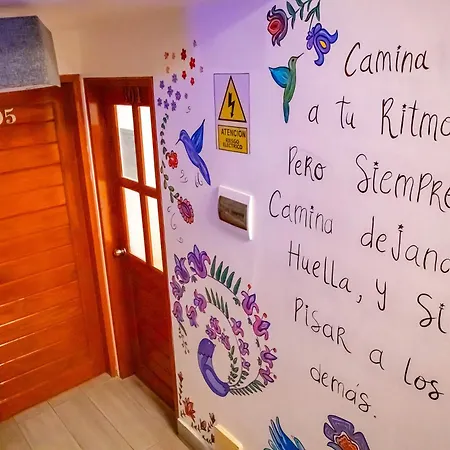 05
ATENCIÓN
RIESGO
ELÉCTRICO
Camina
a tu Ritmo
Pero Siempre
Camina dejan
Huella, y Si
pisar a los
demás.